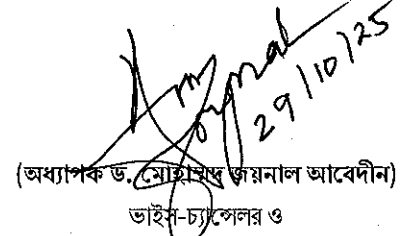 29/10/25
(অধ্যাপক ড. মোহাম্মদ জয়নাল আবেদীন)
ভাইস-চ্যান্সেলর ও